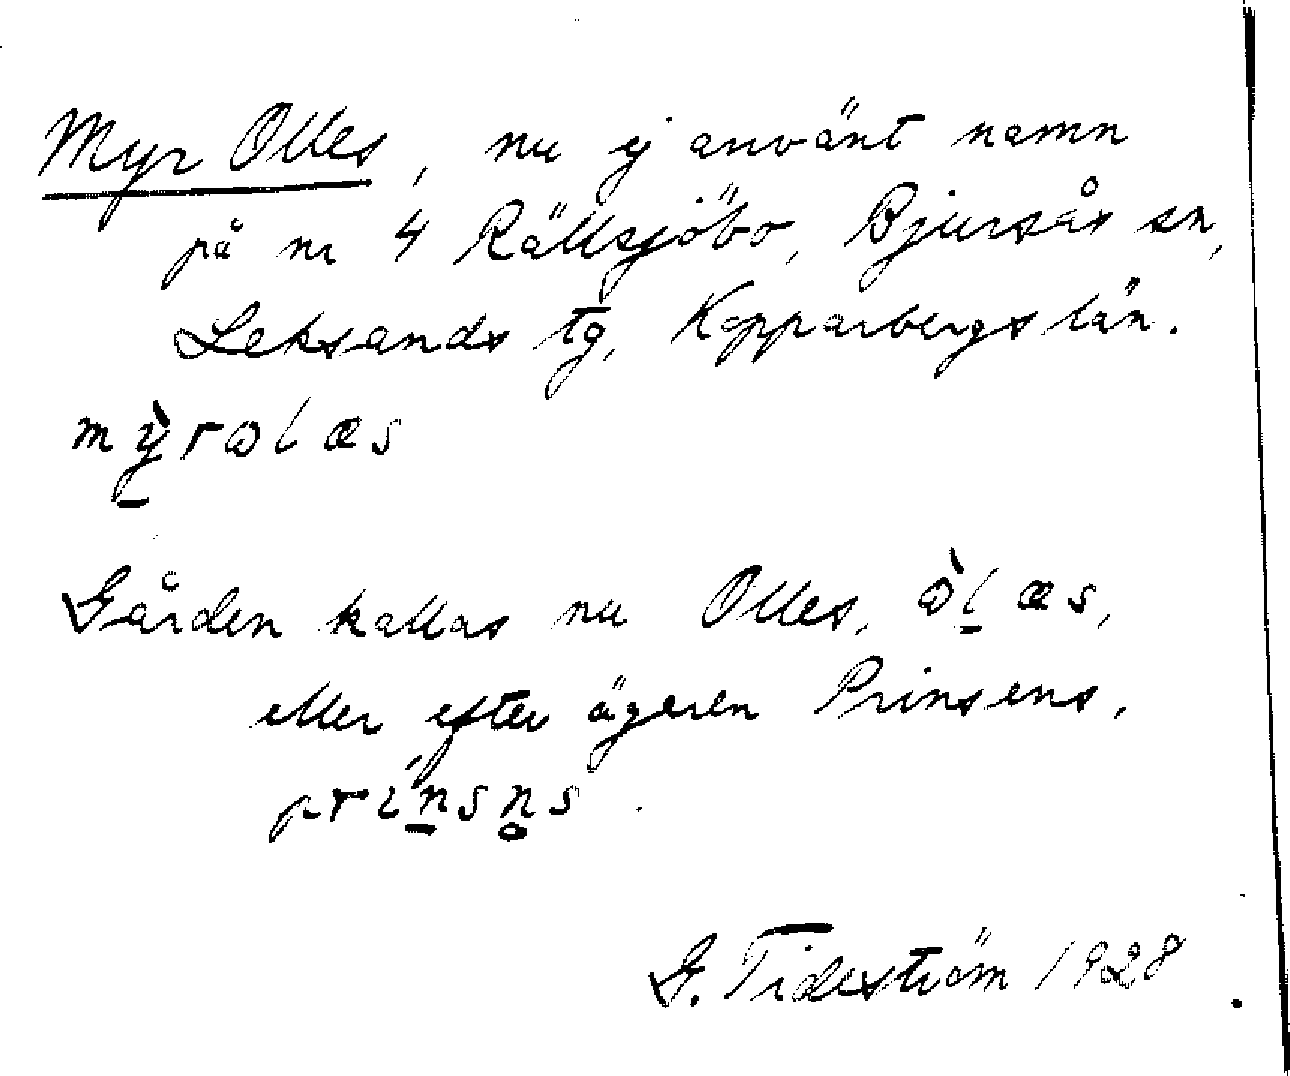 Myr Olles, nu ej använt namn
på nr 4 Rällsjöbo, Bjursås sn,
Leksands tg, Kopparbergs län.
mỳ̠rɷlæs
Gården kallas nu Olles, ɷ̀l̠æs,
eller efter ägaren Prinsens,
prín̠sn̥s.
G. Tideström 1928